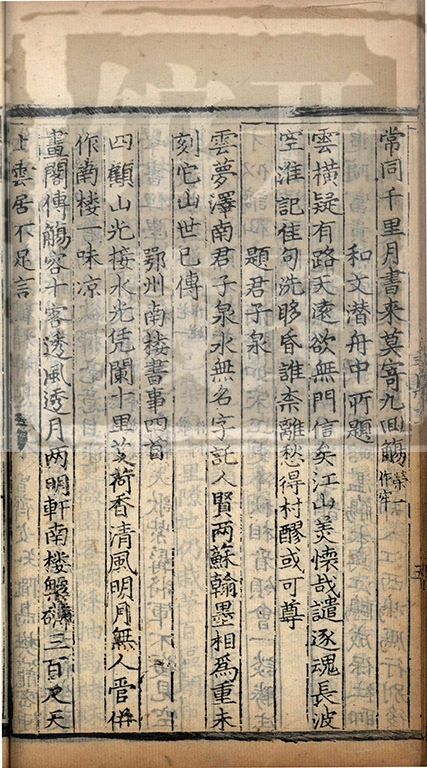 常同千里月書來莫寄九回觴榮一作牢
和文潛舟中所題
雲橫疑有路天遠欲無門信矣江山美懷哉譴逐魂長波
空淮記佳句洗眵昏誰柰離愁得村醪或可尊
題君子泉
雲夢澤南君子泉水無名字託人賢兩蘇翰墨相爲重未
刻它山世已傳
鄂州南樓書事四首
四顧山光接水光凭闌十里芰荷香清風明月無人管併
作南楼一味凉
畫閣傳觴容十客透風透月兩明軒南楼盤礴三百尺天
上雲居不足言